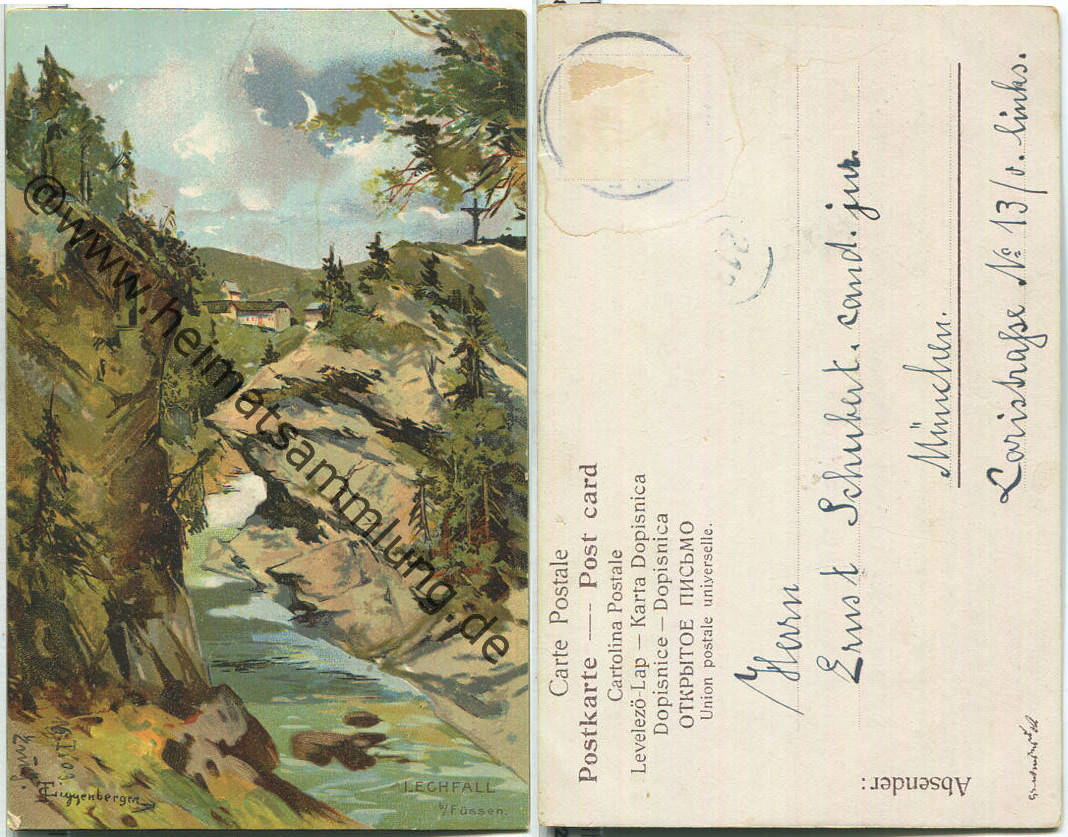 @www.heimatsammlung.de
LECHFALL
b/Füssen.
Carte Postale
Postkarte — Post card
Cartolina Postale
Levelező-Lap — Karta Dopisnica
Dopisnice – Dopisnica
ОТКРЫТОЕ ПИСЬМО
Union postale universelle.
Herrn
Ernst Schubert. cand. jur.
München.
Larisstraße № 13/0. links.
Absender: